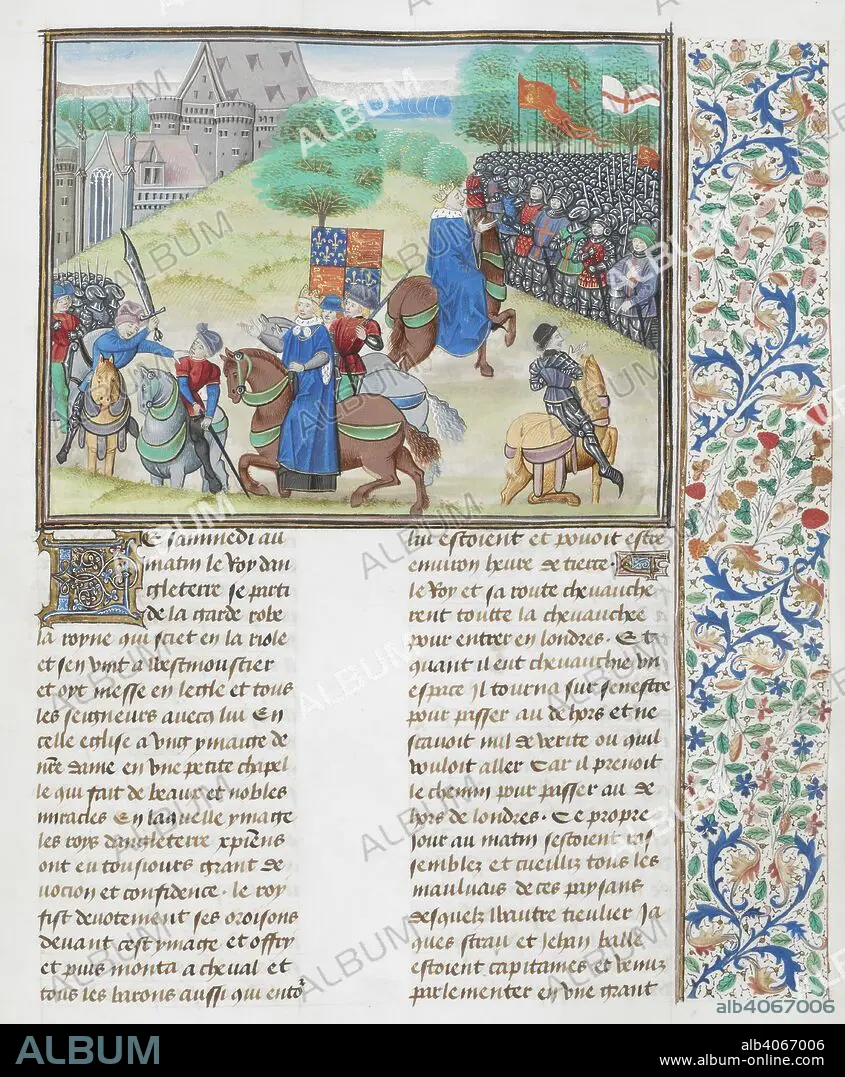 Le sammedi au
matin le Roy dan
gleterre se parti
de la garde robe
la royne qui sciet en la riole
et sen vint a westmoustier
et oyt messe en leglē et tous
les seigneurs avecq lui En
celle eglise a vng ymaige de
nr̄e dame en vne petite chapel
le qui fait de beaux et nobles
miracles En laquelle ymage
les roys dangleterre xp̄iens
ont eu tousiours grant de
uocion et confidence · le roy
fist deuotement ses oroisons
deuant cest ymage et offry
et puis monta a cheval et
tous les barons aussi qui ento
lui estoient et pouoit estre
environ heure de tierce ·
le Roy et sa route cheuauche
rent toutte la cheuauchee
pour entrer en londres · Et
quant il eut cheuauchie vn
espace Il tourna sur senestre
pour passer au dehors et ne
scauoit nul de verite ou quil
vouloit aller Car il prenoit
le chemin pour passer au de
hors de londres · Ce propre
Jour au matin sestoient ras
semblez et cueilliz tous les
mauluais de ces paysans
desquelz wautre tieulier Ja
ques strau et Jehan balle
estoient capitaines et venuz
parlementer en vne grant
ALBUM
alb4067006
ALBUM
alb4067006
www.album-online.com